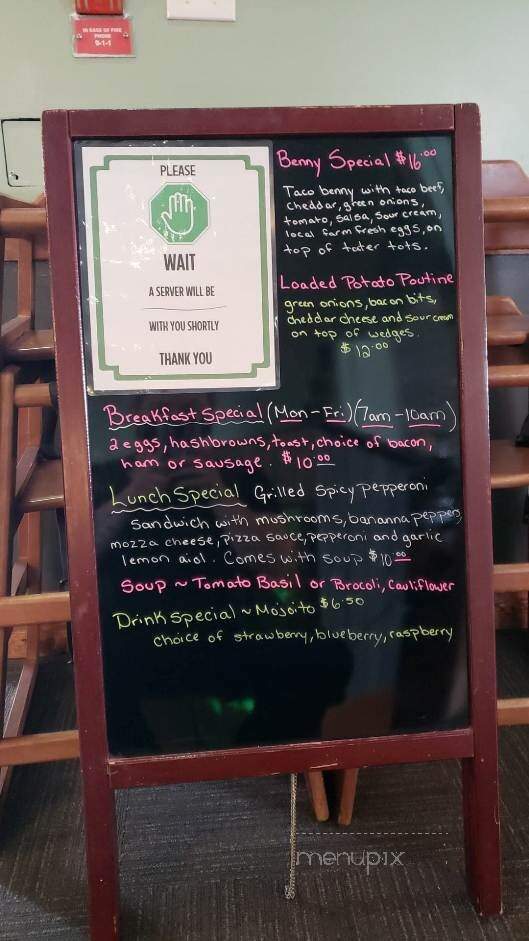 IN CASE OF FIRE
PHONE
9-1-1
PLEASE
WAIT
A SERVER WILL BE
WITH YOU SHORTLY
THANK YOU
Benny Special $16.00
Taco benny with taco beef,
cheddar, green onions,
tomato, salsa, sour cream,
local farm fresh eggs, on
top of tater tots.
Loaded Potato Poutine
green onions, bacon bits,
cheddar cheese and sour cream
on top of wedges.
$12.00
Breakfast Special (Mon-Fri) (7am-10am)
2 eggs, hashbrowns, toast, choice of bacon,
ham or sausage. $10.00
Lunch Special Grilled Spicy Pepperoni
Sandwich with mushrooms, bananna peppers
mozza cheese, pizza sauce, pepperoni and garlic
lemon aioli. Comes with soup $10.00
Soup ~ Tomato Basil or Brocoli, Cauliflower
Drink special ~ Mojoito $6.50
choice of strawberry, blueberry, raspberry
menupix